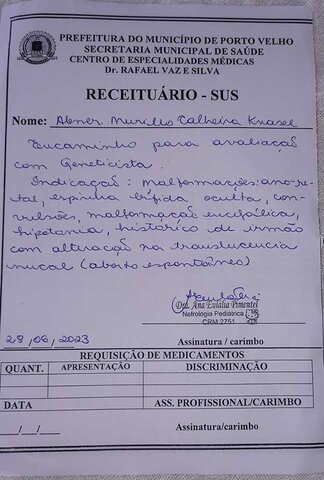 PREFEITURA DO MUNICÍPIO DE PORTO VELHO
SECRETARIA MUNICIPAL DE SAÚDE
CENTRO DE ESPECIALIDADES MÉDICAS
Dr. RAFAEL VAZ E SILVA
RECEITUÁRIO - SUS
Nome: Abner Murillo Calheira
Encaminho para avaliação
com Geneticista.
Indicação: malformações: ano-re-
tal, espinha bífida oculta, con-
vulsões, malformação encefálica,
hipotonia, histórico de irmão
com alteração na translucencia
nucal (aborto espontâneo)
Dra. Ana Eulália Pimentel
Nefrologia Pediátrica
CRM 2751
28/06/2023
Assinatura / carimbo
REQUISIÇÃO DE MEDICAMENTOS
QUANT. APRESENTAÇÃO DISCRIMINAÇÃO
DATA ASS. PROFISSIONAL/CARIMBO
__/__/__ Assinatura/carimbo